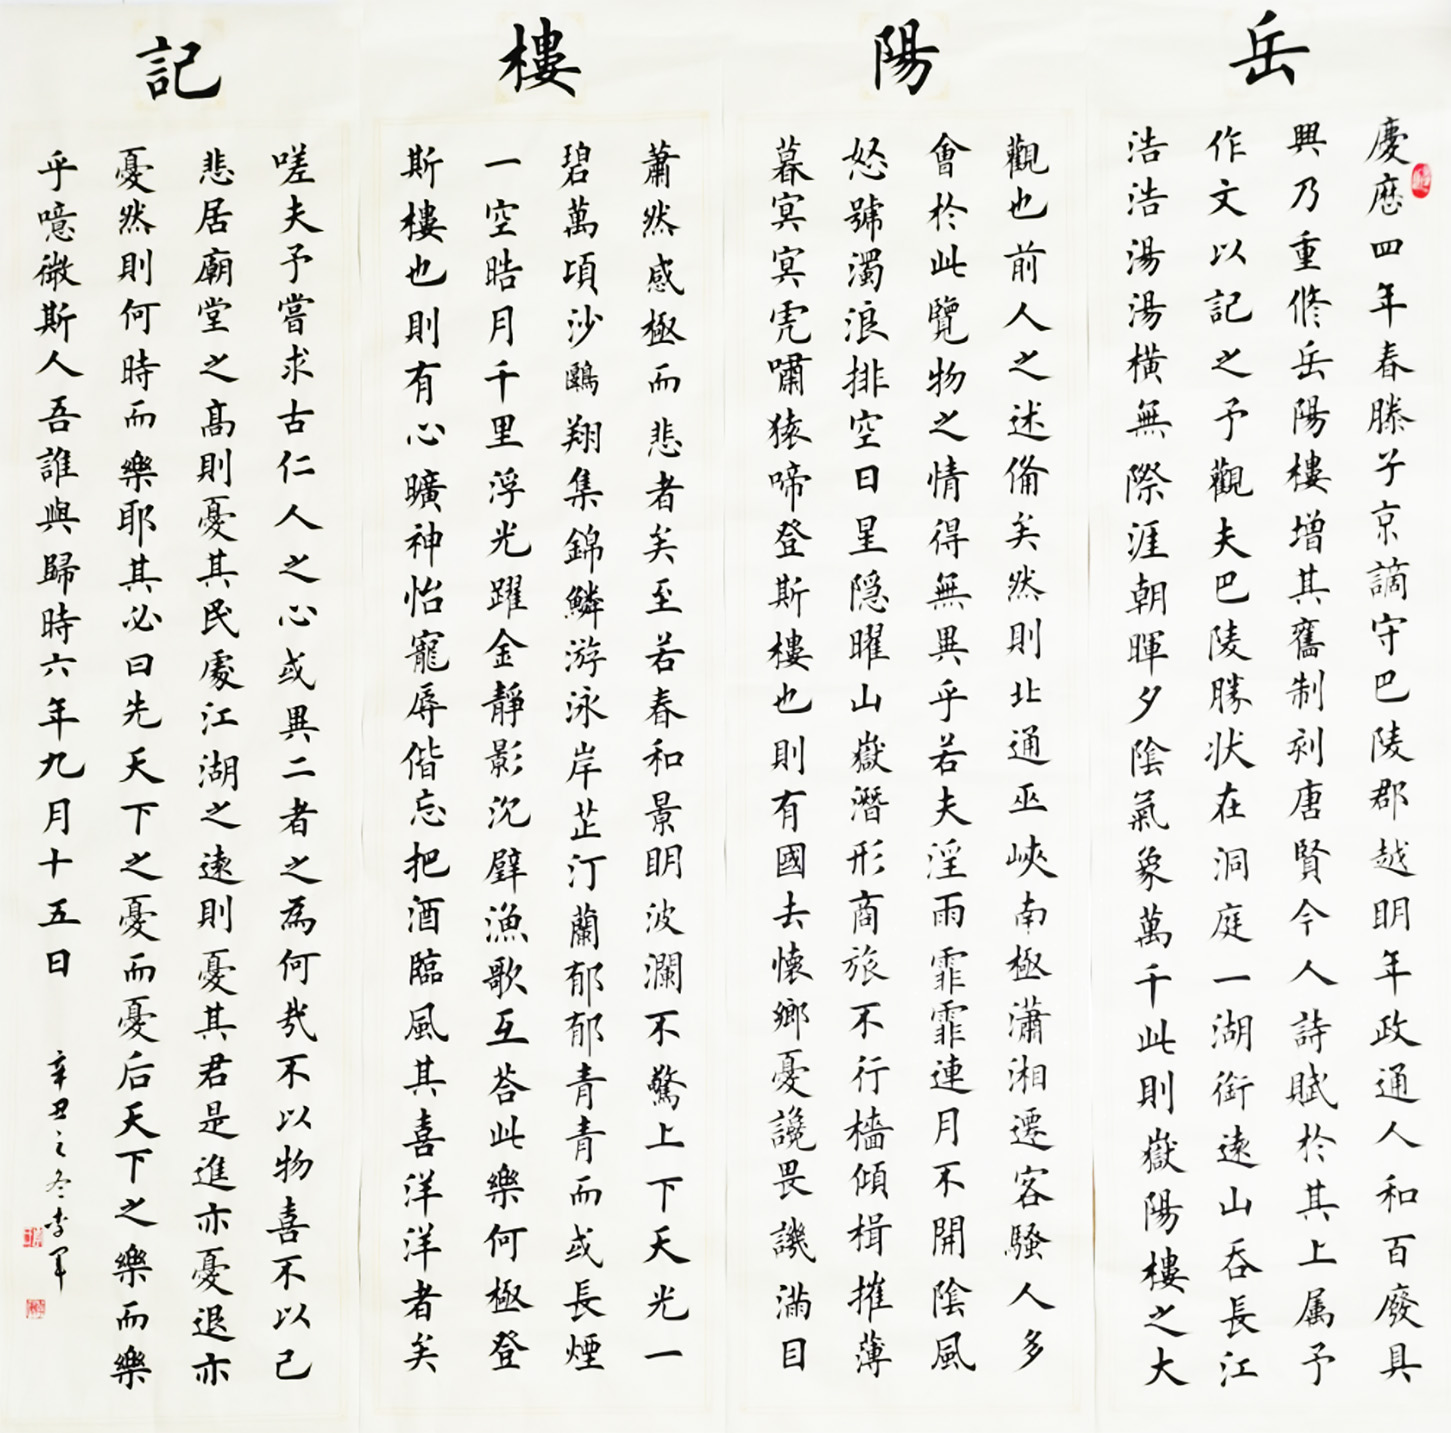 岳陽樓記
慶歷四年春滕子京謫守巴陵郡越明年政通人和百廢具
興乃重修岳陽樓增其舊制刻唐賢今人詩賦於其上属予
作文以記之予觀夫巴陵勝狀在洞庭一湖銜遠山吞長江
浩浩湯湯橫無際涯朝暉夕陰氣象萬千此則嶽陽樓之大
觀也前人之述備矣然則北通巫峽南極瀟湘遷客騷人多
會於此覽物之情得無異乎若夫淫雨霏霏連月不開陰風
怒號濁浪排空日星隱曜山嶽潛形商旅不行檣傾楫摧薄
暮冥冥虎嘯猿啼登斯樓也則有國去懷鄉憂讒畏譏滿目
蕭然感極而悲者矣至若春和景明波瀾不驚上下天光一
碧萬頃沙鷗翔集錦鱗游泳岸芷汀蘭郁郁青青而或長煙
一空皓月千里浮光躍金靜影沉璧漁歌互荅此樂何極登
斯樓也則有心曠神怡寵辱偕忘把酒臨風其喜洋洋者矣
嗟夫予嘗求古仁人之心或異二者之為何哉不以物喜不以己
悲居廟堂之高則憂其民處江湖之遠則憂其君是進亦憂退亦
憂然則何時而樂耶其必曰先天下之憂而憂后天下之樂而樂
乎噫微斯人吾誰與歸時六年九月十五日
辛丑之冬李軍